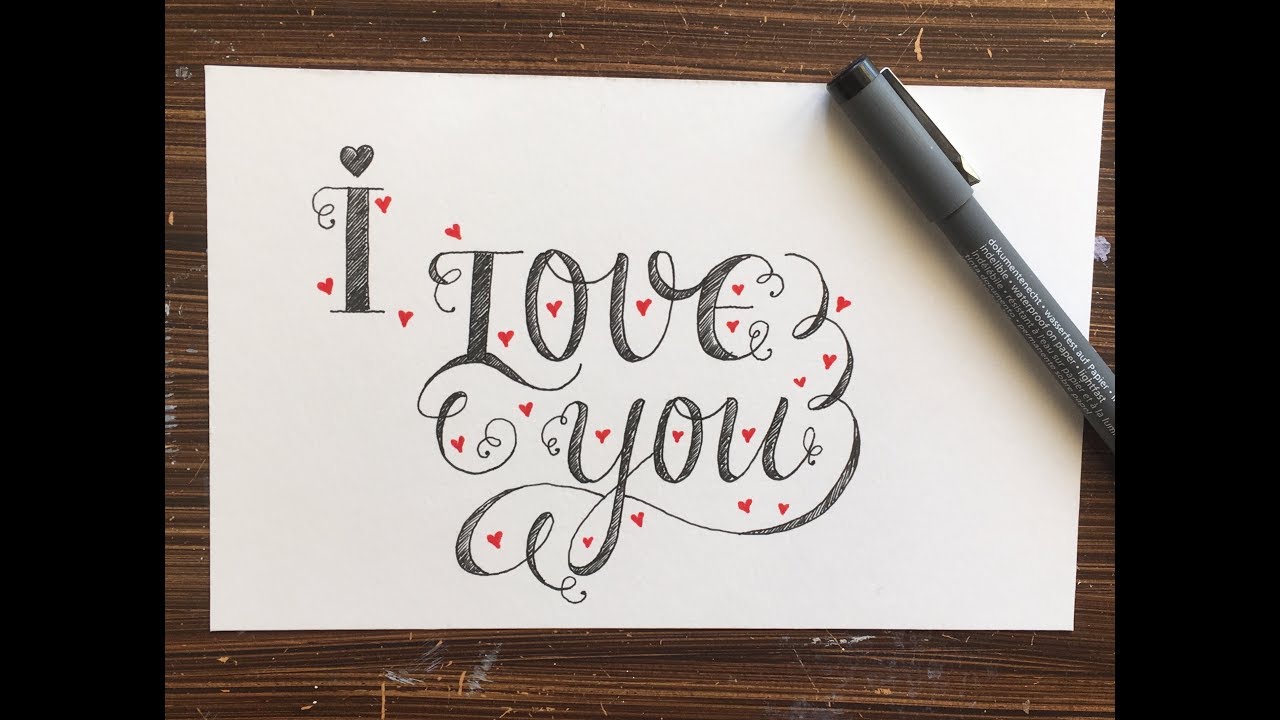 i
Love
you
dokumentenecht • wasserfest auf Papier •
indelible • waterproof on paper • lightfast